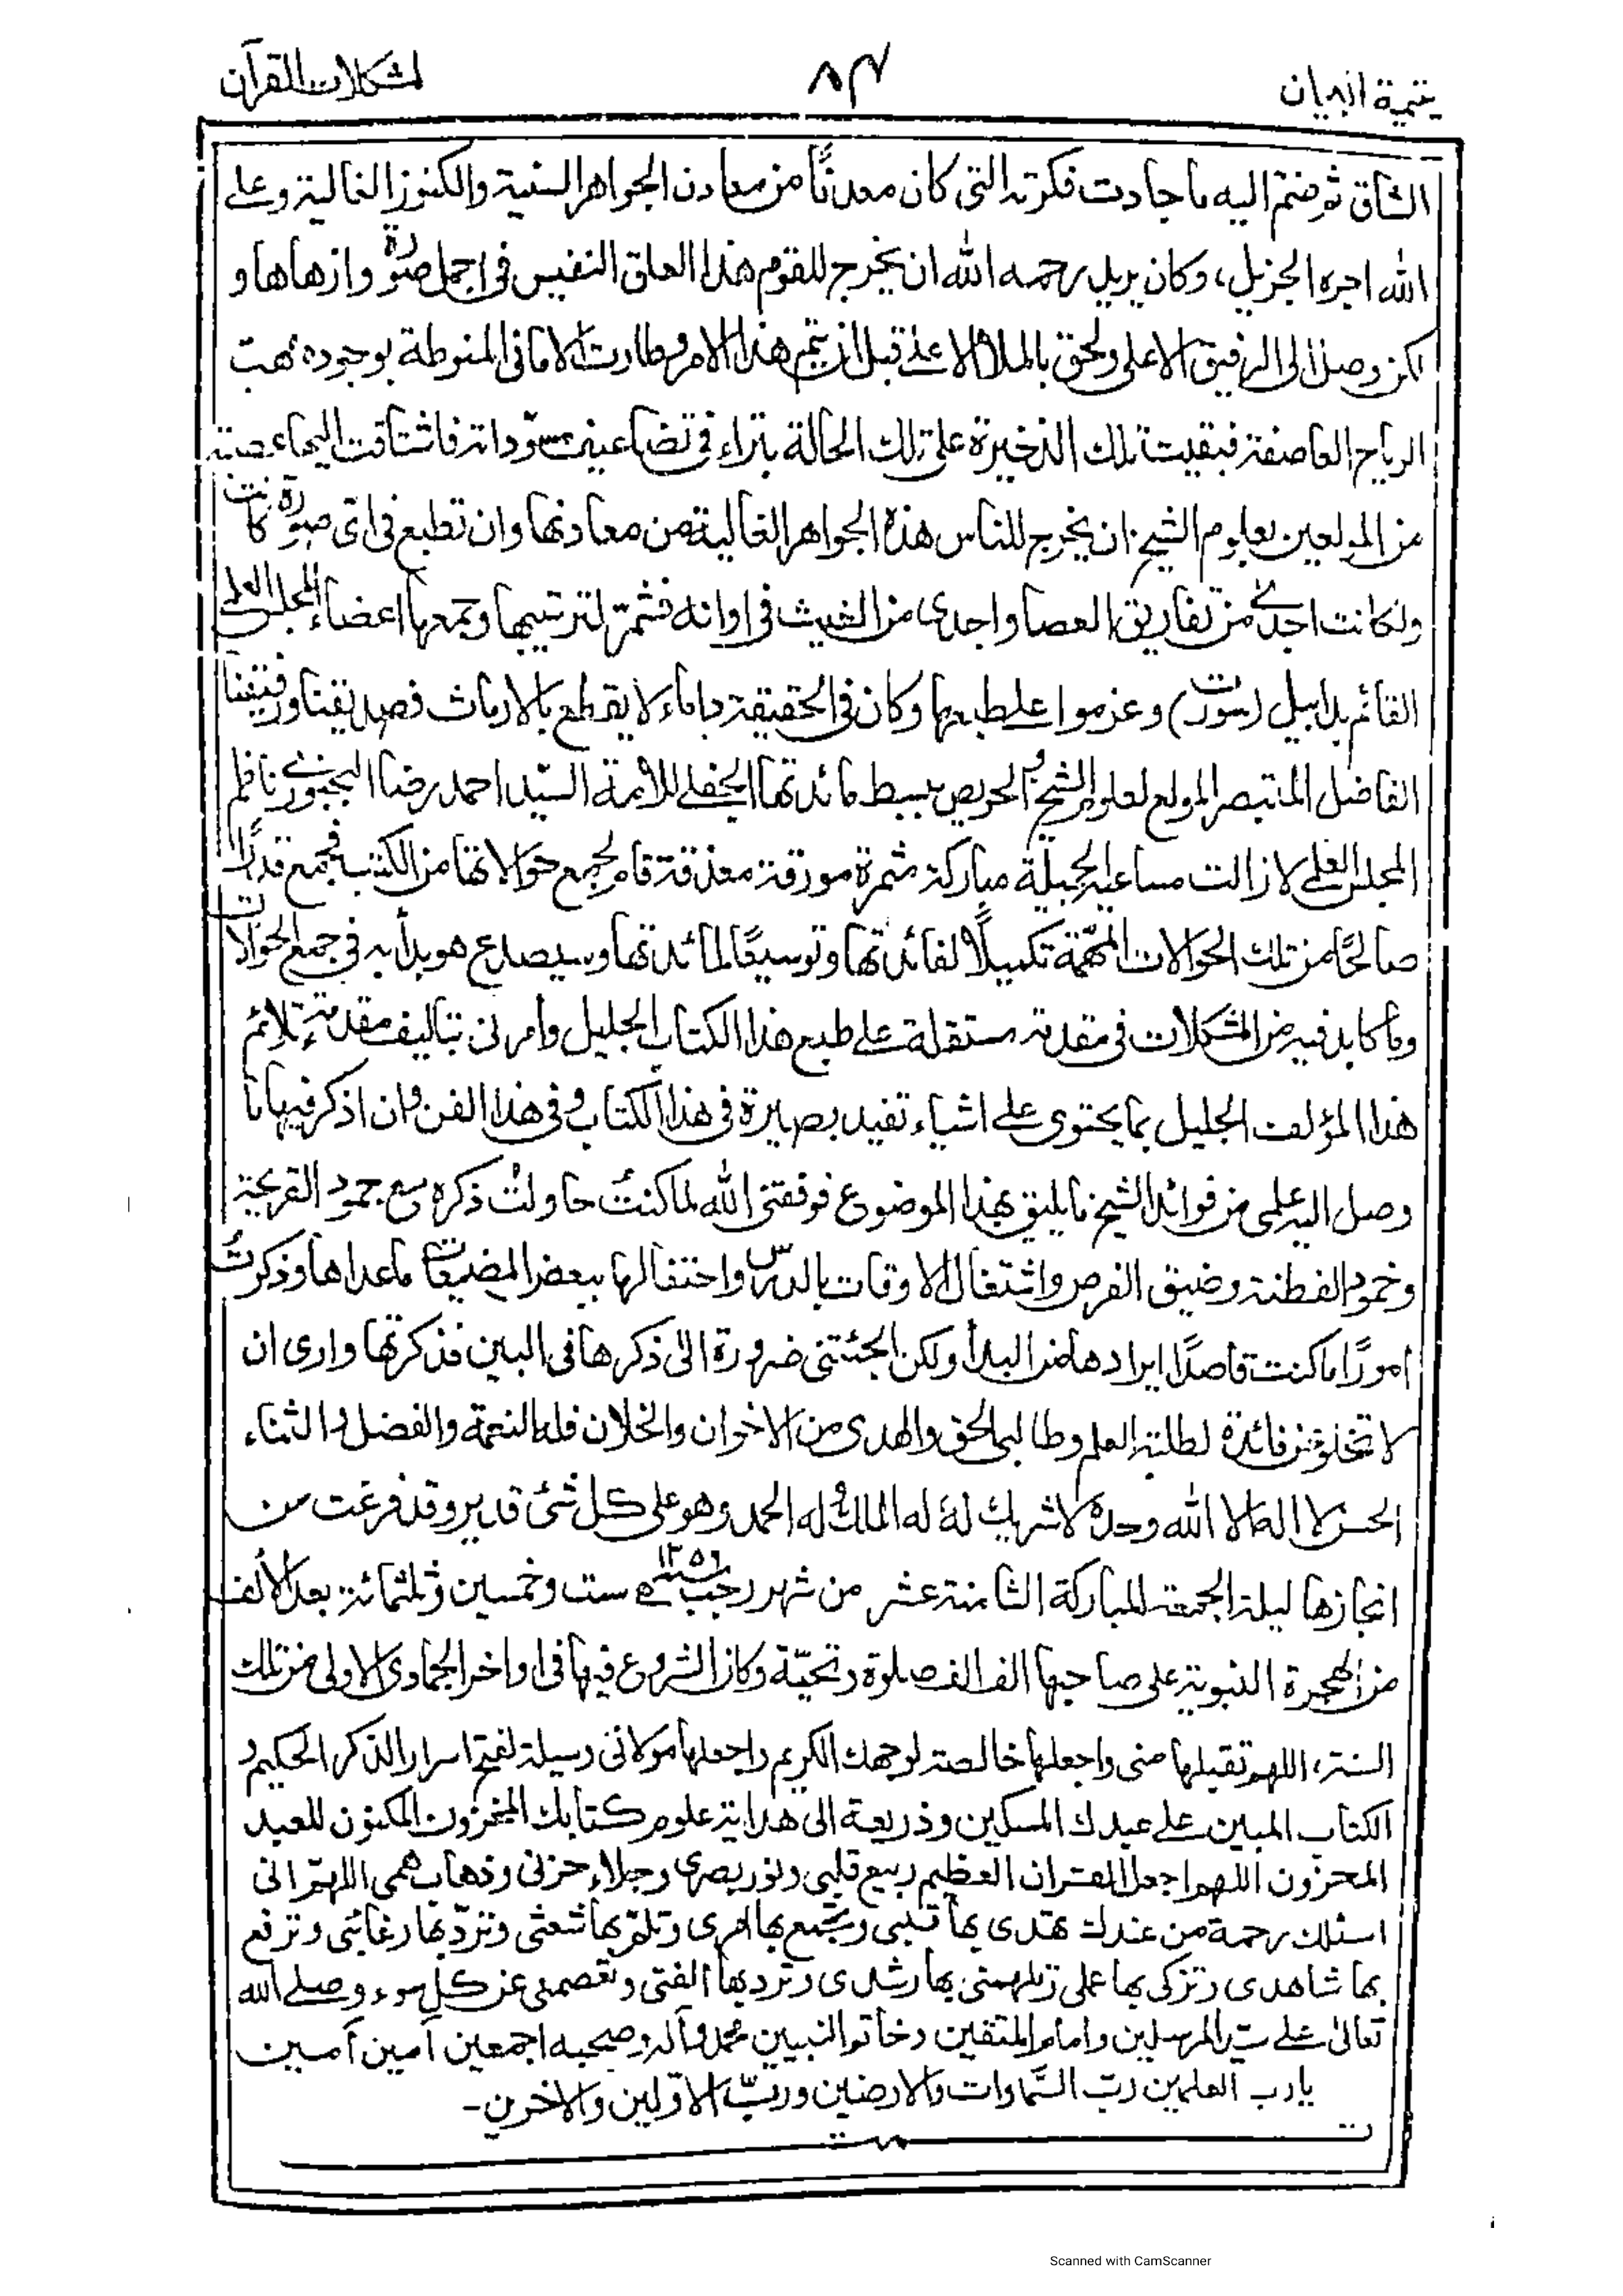 يتيمة البيان ٨٤ لمشكلات القرآن
الشاق ثم ضم اليه ما جادت فكرته التى كان معدنًا من معادن الجواهر السنية والكنوز الغالية وعلى
الله اجره الجزيل، وكان يريد رحمه الله ان يخرج للقوم هذا العلق النفيس فى اجمل صورة وازهاها و
لكن وصل الى الرفيق الاعلى ولحق بالملأ الاعلى قبل ان يتم هذا الامر وطارت الامانى المنوطة بوجوده مهب
الرياح العاصفة فبقيت تلك الذخيرة على تلك الحالة بتراء فى تضاعيف مسوّداته فاشتاقت اليها عصبة
من المولعين بعلوم الشيخ ان يخرج للناس هذه الجواهر الغالية من معادنها وان تطبع فى اى صورة كانت
ولكانت اجدى من تفاريق العصا واجدى من الغيث فى اوانه فشمّر لترتيبها وجمعها اعضاء المجلس العلمى
القائم بدابيل (سورت) وعزموا على طبعها وكان فى الحقيقة داماء لا يقطع بالارماث فصديقنا ورفيقنا
الفاضل المتبصر المولع لعلوم الشيخ الحريص ببسط مائدتها الجفلى للأمة السيّد احمد رضا البجنورى ناظم
المجلس العلمى لا زالت مساعيه الجميلة مباركة مثمرة مورقة معذقة قام لجمع حوالاتها من الكتب فجمع قدرًا
صالحًا من تلك الحوالات المهمّة تكميلًا لفائدتها وتوسيعًا لمائدتها وسيصدع هو بدأبه فى جمع الحوالات
وما كابد فيه من المشكلات فى مقدمة مستقلة على طبع هذا الكتاب الجليل وأمرنى بتاليف مقدمة تلائم
هذا المؤلف الجليل بما يحتوى على اشياء تفيد بصيرة فى هذا الكتاب وفى هذا الفن وان اذكر فيها ما
وصل اليه علمى من فوائد الشيخ ما يليق بهذا الموضوع فوفقنى الله لما كنتُ حاولتُ ذكره مع جمود القريحة
وخمود الفطنة وضيق الفرص واشتغال الاوقات بالدرس واحتفالها ببعض المضيعات ما عداها وذكرتُ
امورًا ما كنت قاصدًا ايرادها من البدأ ولكن الجئتنى ضرورة الى ذكرها فى البين فذكرتها وارى ان
لا تخلو من فائدة لطلبة العلم وطالبى الحق والهدى من الاخوان والخلان فله النعمة والفضل وله الثناء
الحسن لا اله الا الله وحده لا شريك له له الملك وله الحمد وهو على كل شئ قدير وقد فرغت من
انجازها ليلة الجمعة المباركة الثامنة عشر من شهر رجب سنة ١٣٥٦ه ست وخمسين وثلثمائة بعد الألف
من الهجرة النبوية على صاحبها الف الف صلوة وتحيّة وكان الشروع فيها فى اواخر الجمادى الاولى من تلك
السنة، اللهم تقبلها منى واجعلها خالصة لوجهك الكريم واجعلها مولائى وسيلة لفتح اسرار الذكر الحكيم و
الكتاب المبين على عبدك المسكين وذريعة الى هداية علوم كتابك المخزون المكنون للعبد
المحزون اللهم اجعل القرآن العظيم ربيع قلبى ونور بصرى وجلاء حزنى وذهاب همى اللهمّ انى
اسئلك رحمة من عندك تهدى بها قلبى وتجمع بها امرى وتلمّ بها شعثى وتردّ بها رغائبى وترفع
بها شاهدى وتزكى بها عملى وتلهمنى بها رشدى وترد بها الفتى وتعصمنى عن كل سوء وصلى الله
تعالى على سيد المرسلين وامام المتقين وخاتم النبيين محمد وآله وصحبه اجمعين آمين آمين
يا رب العلمين ربّ السّماوات والارضين وربّ الاوّلين والاخرين۔
Scanned with CamScanner